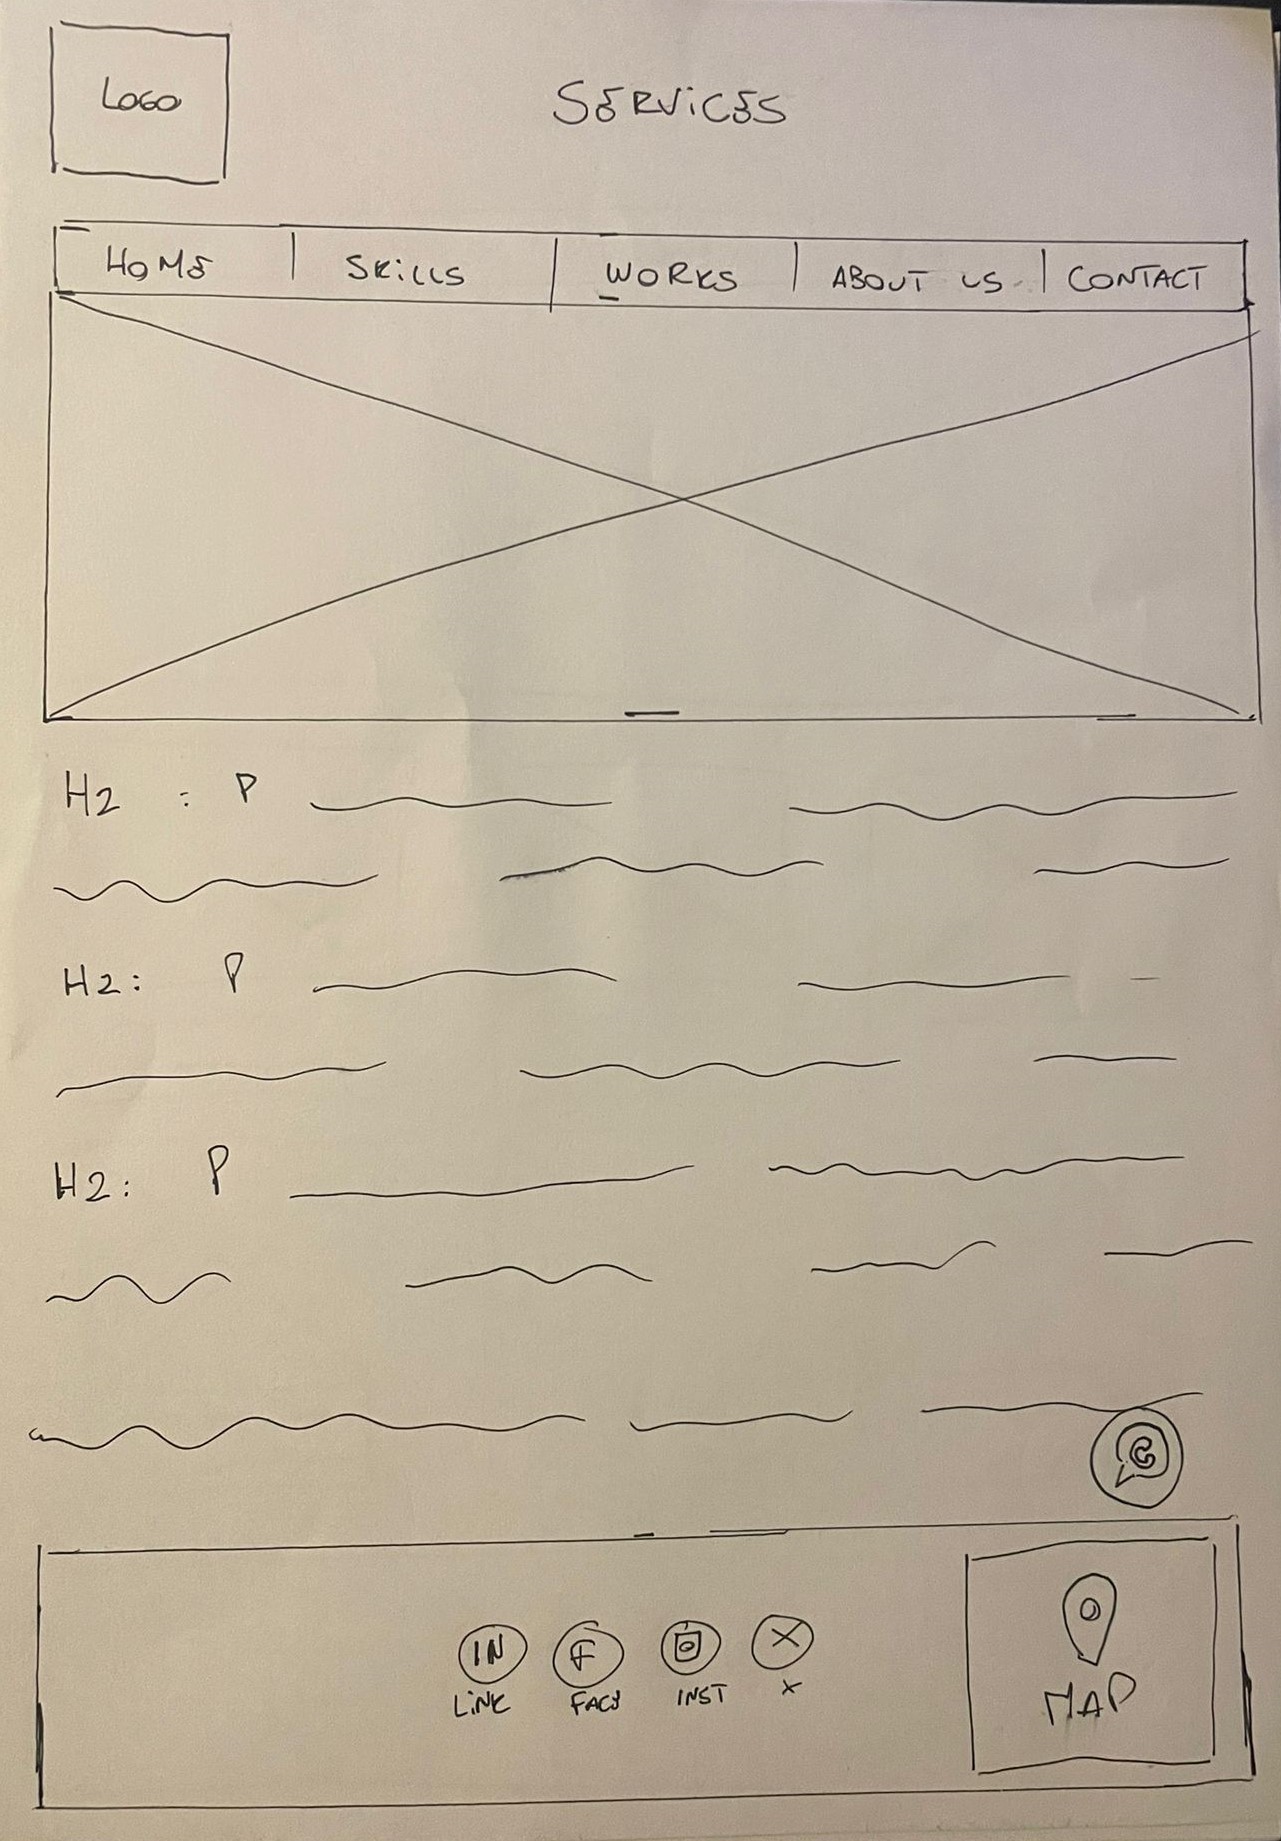 LOGO
SERVICES
HOME SKILLS WORKS ABOUT US CONTACT
H2 : P
H2: P
H2: P
IN F X
LINK FACB INST X
MAP